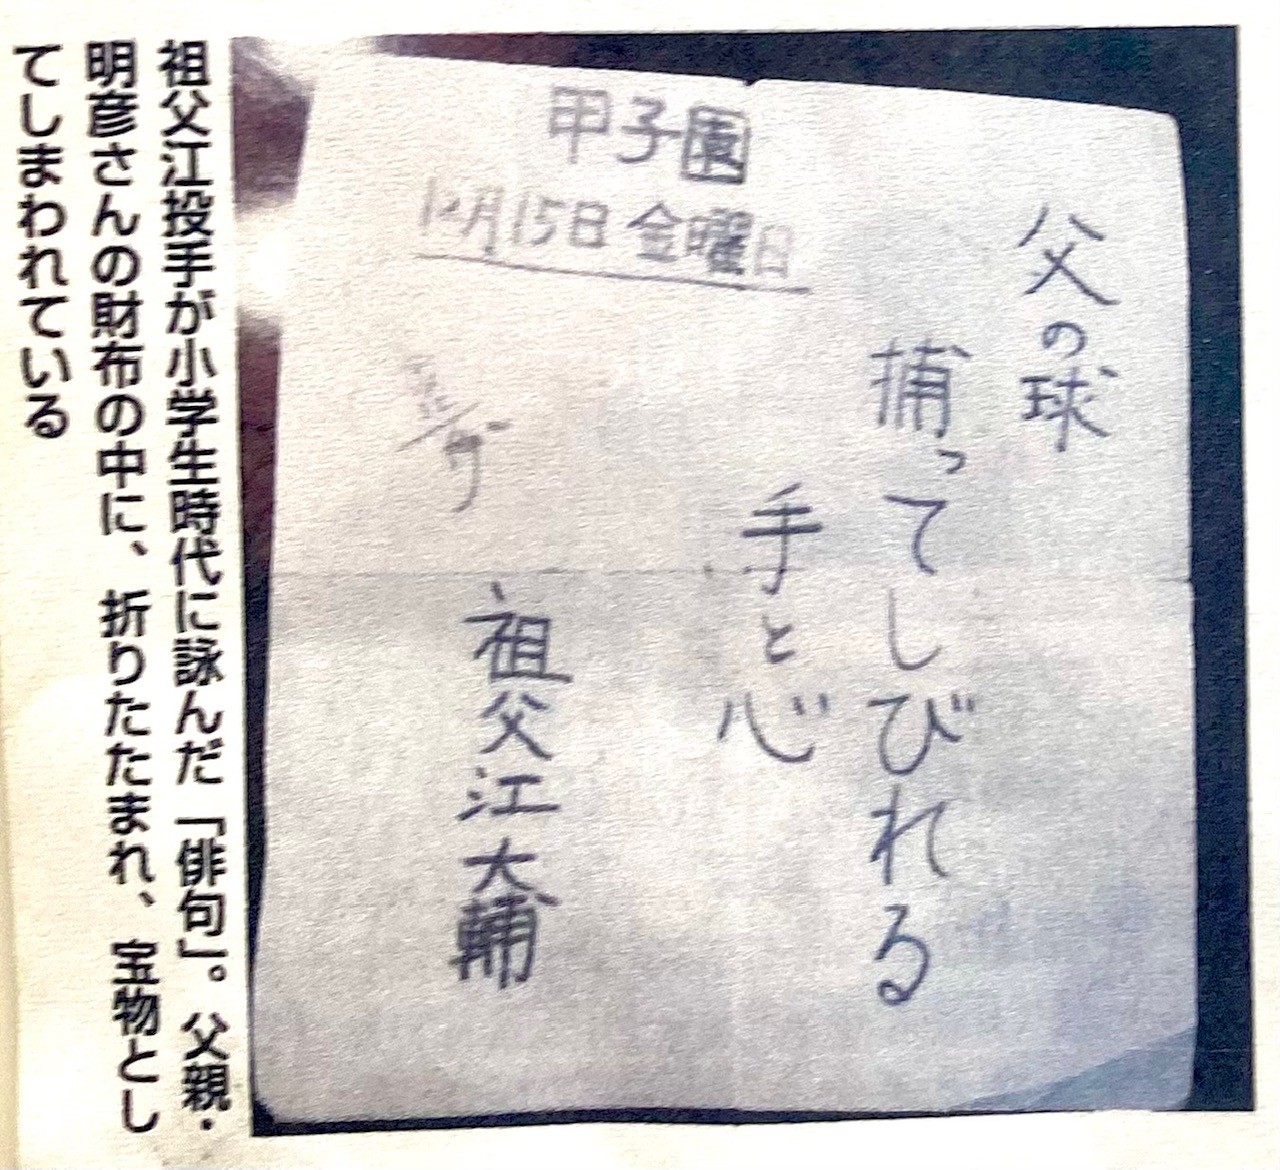 甲子園
12月15日 金曜日
父の球
捕ってしびれる
手と心
祖父江大輔
祖父江投手が小学生時代に詠んだ「俳句」。父親・
明彦さんの財布の中に、折りたたまれ、宝物とし
てしまわれている